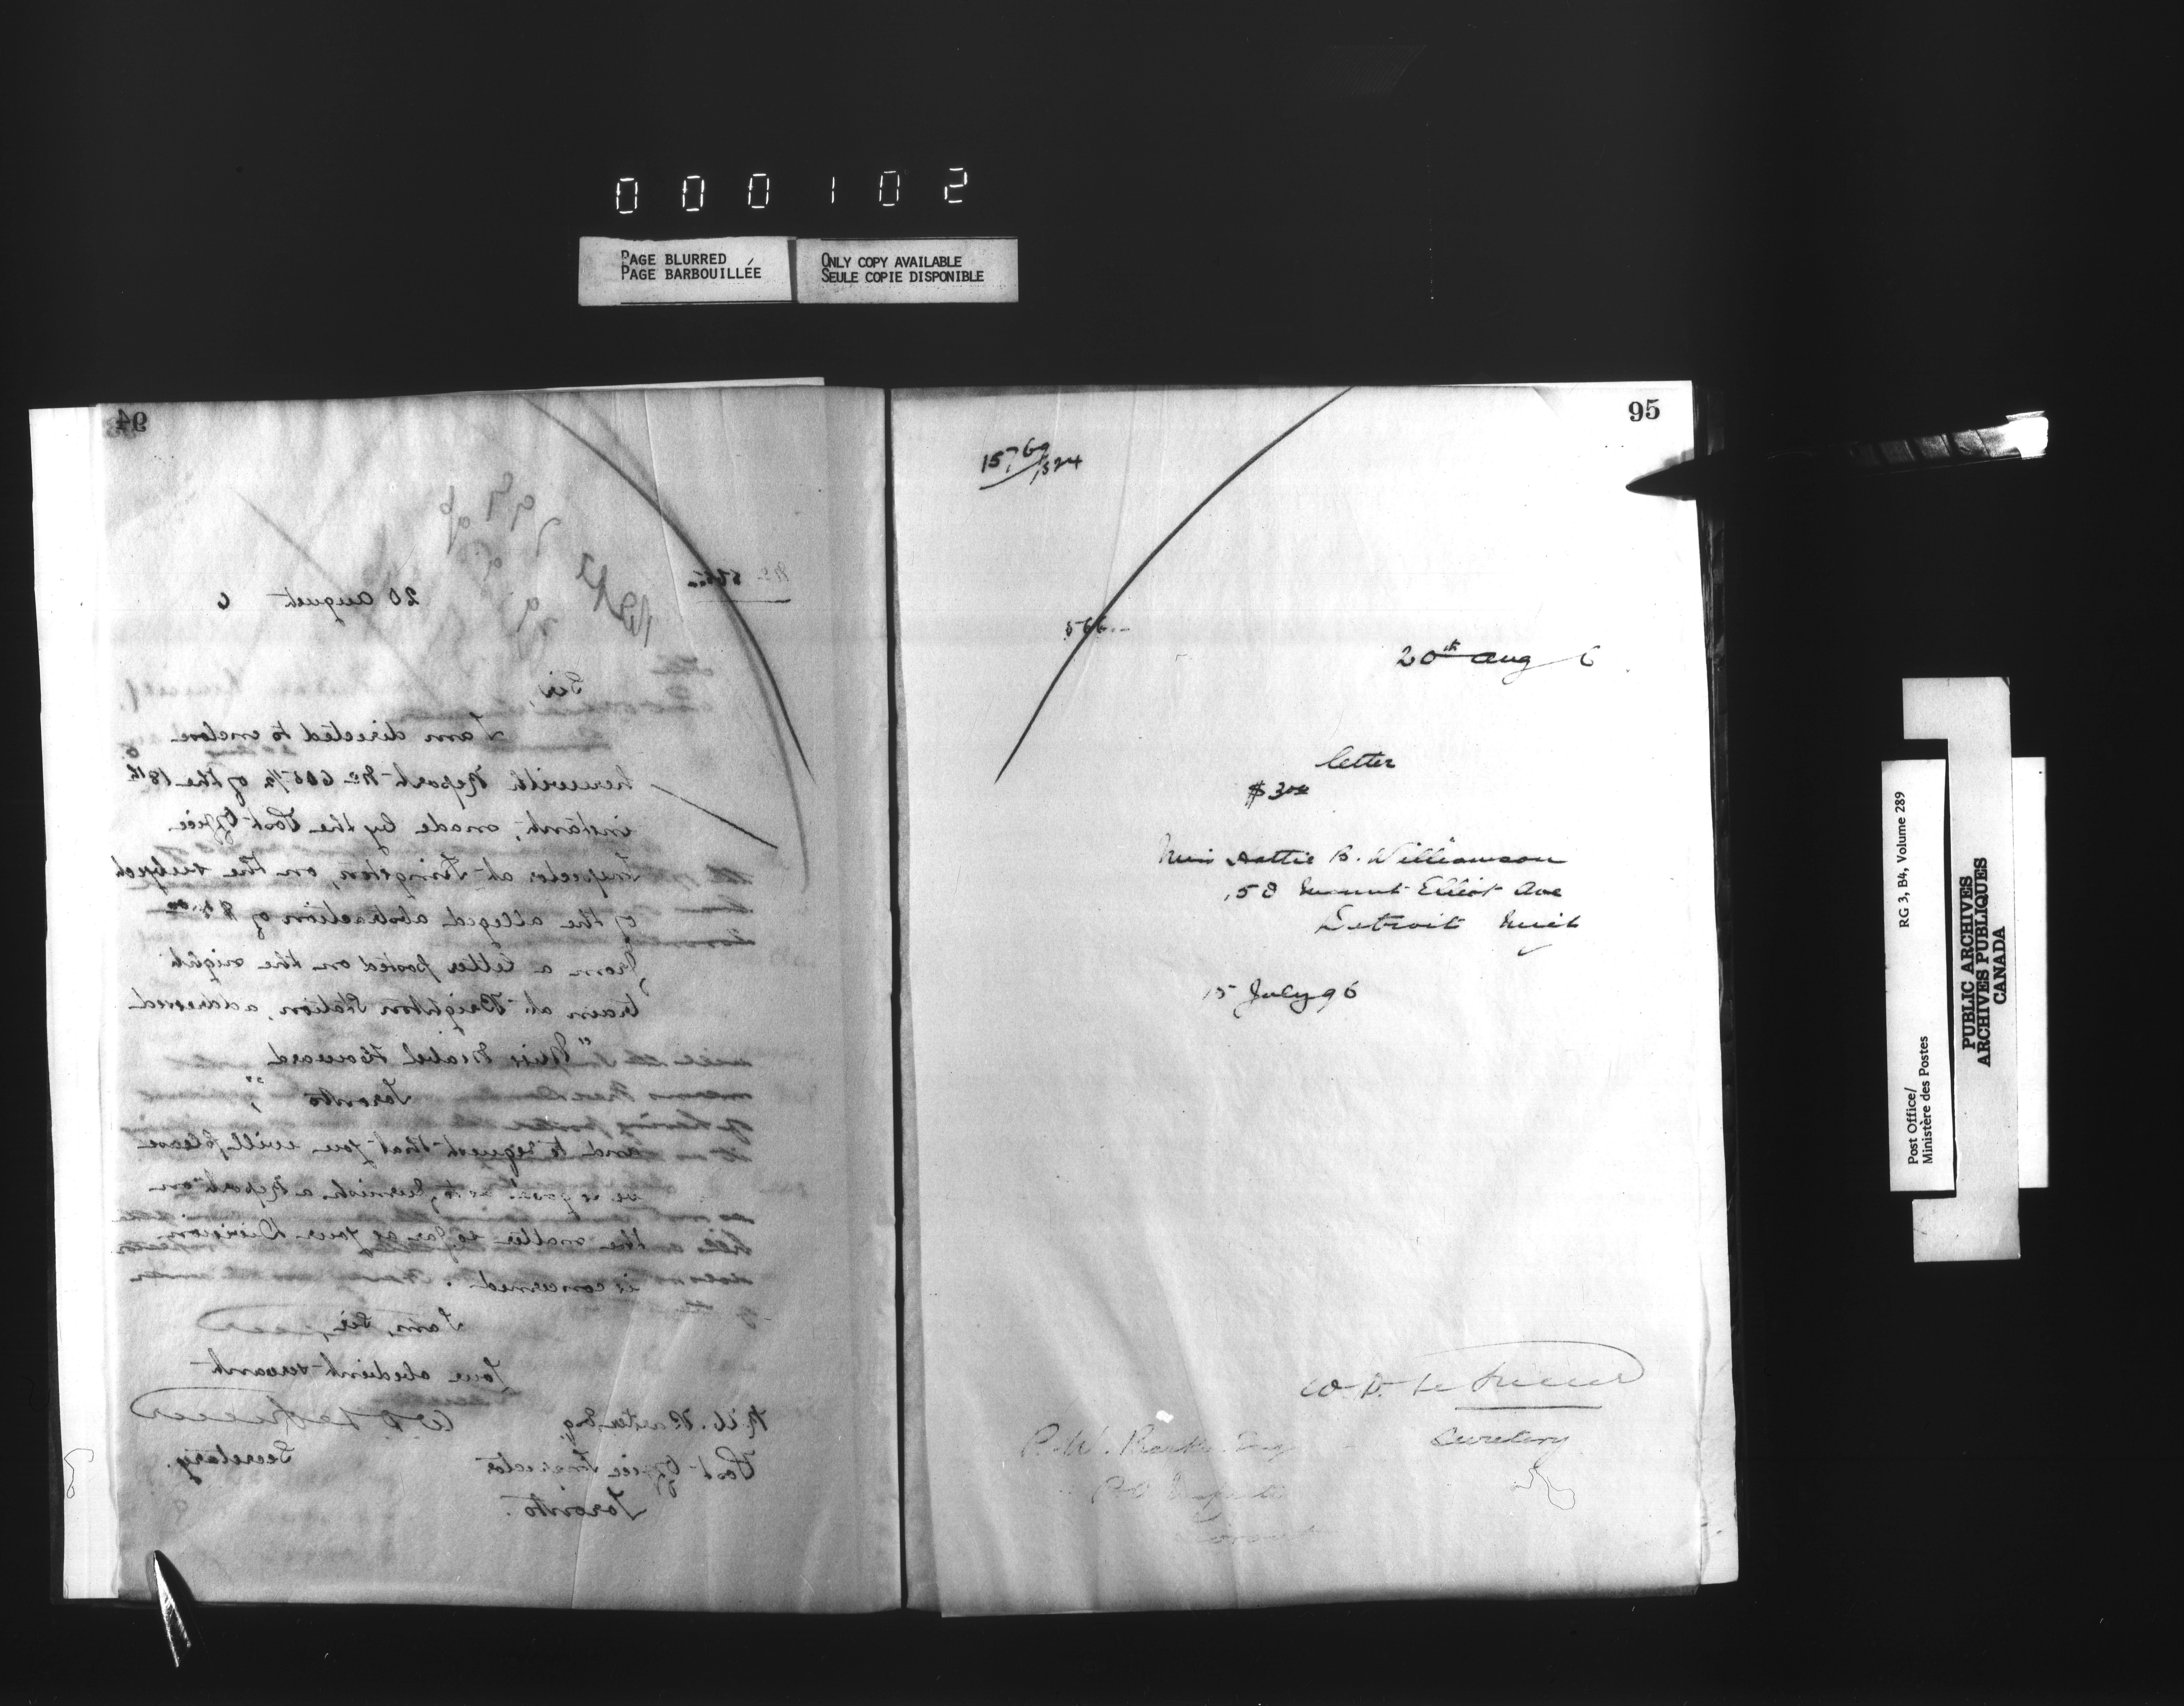 000102
PAGE BLURRED
PAGE BARBOUILLÉE
ONLY COPY AVAILABLE
SEULE COPIE DISPONIBLE
94
20 August 6
Sir,
I am directed to enclose
herewith Report No 605½ of the 18th
instant, made by the Post Office
Inspector at Kingston, on the subject
of the alleged abstraction of
from a letter posted on the night
train at Brighton Station, addressed
"Miss Mabel Howard
Toronto",
and to request that you will please
be so good as to furnish a Report on
the matter so far as your Division
is concerned.
I am, Sir,
Your obedient servant
W. D. LeSueur
Secretary.
Post Office Inspector
Toronto.
95
1576
/524
566
20th Aug 6
letter
$3.00
Miss Hattie B. Williamson
158 Mount Elliot Ave
Detroit Mich
15 July 96
W. D. Le Sueur
Secretary
P.O. Inspector
Toronto
RG 3, B4, Volume 289
Post Office/
Ministère des Postes
PUBLIC ARCHIVES
ARCHIVES PUBLIQUES
CANADA